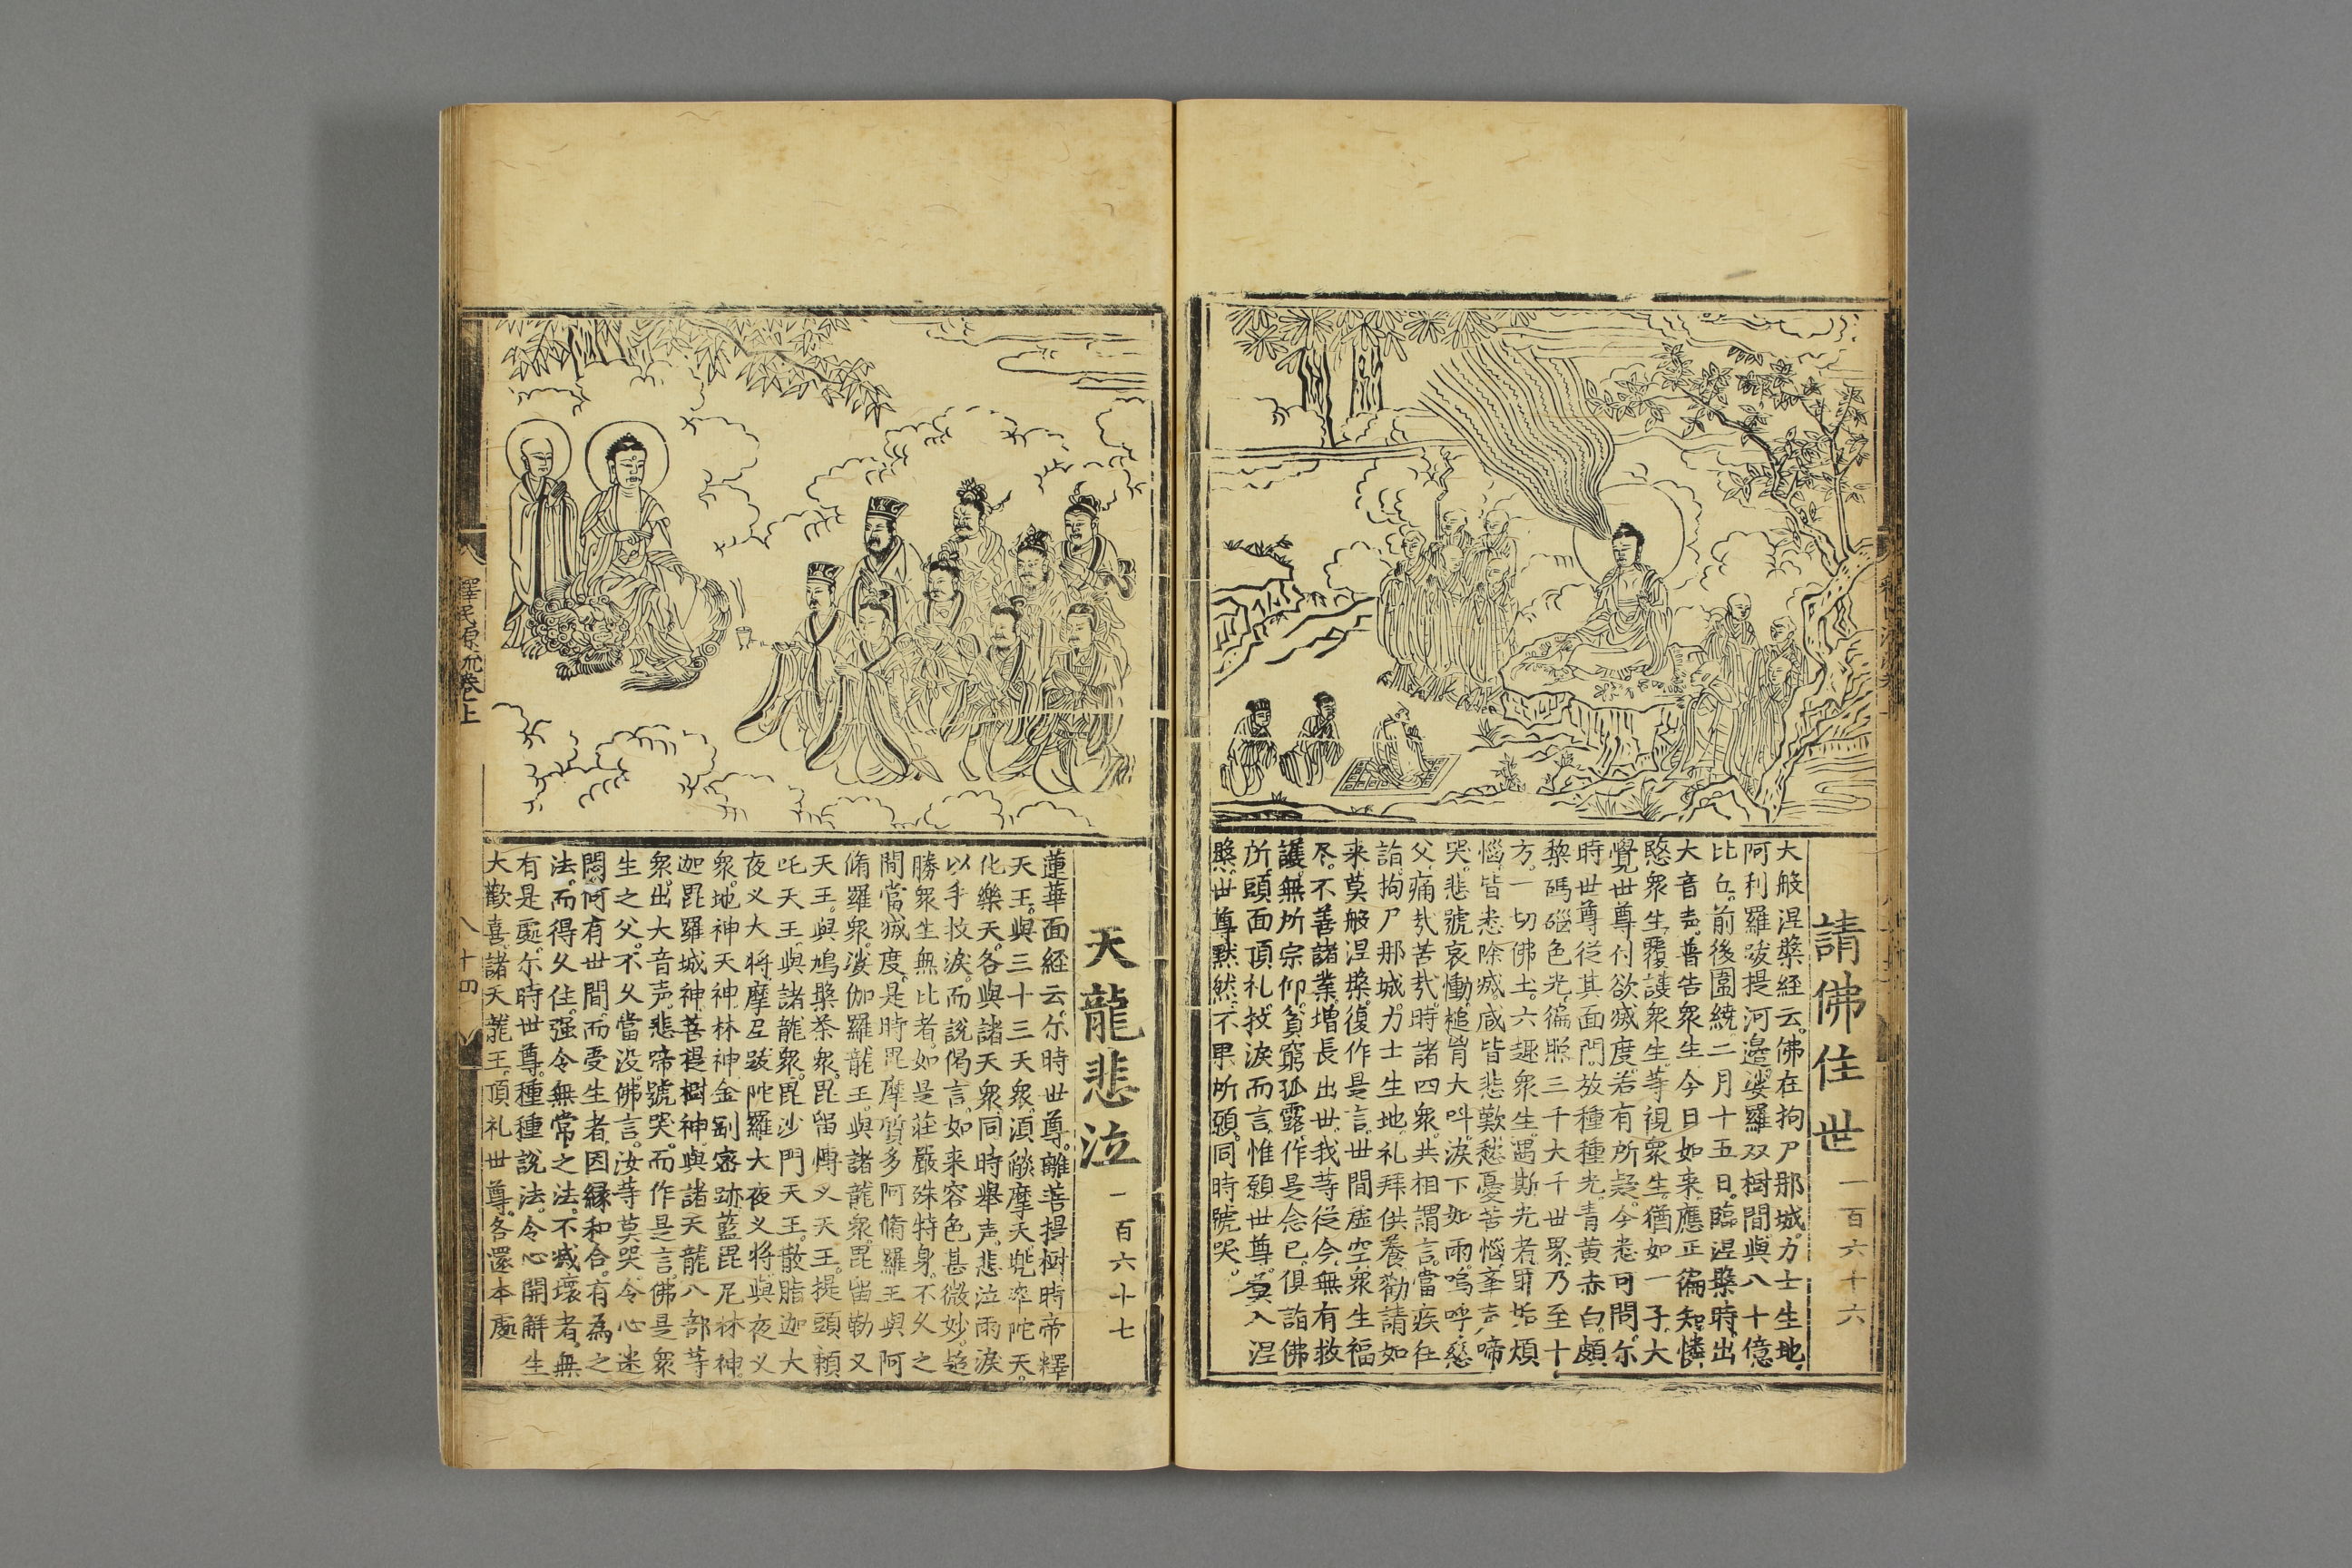 請佛住世 一百六十六
大般涅槃经云。佛在拘尸那城。力士生地。
阿利羅跋提河邉。娑羅双樹間。與八十億
比丘。前後圍繞。二月十五日。臨涅槃時。出
大音声。普告衆生。今日如来應正徧知。憐
愍衆生。覆護衆生。等視衆生。猶如一子。大
覺世尊。付欲㓕度。若有所疑。今悉可問。尓
時世尊。従其面門。放種種光。青黄赤白。頗
黎碼碯色光。徧照三千大千世界。乃至十
方。一切佛土。六趣衆生。遇斯光者。罪垢煩
惱。皆悉除㓕。咸皆悲歎。愁憂苦惱。峯声啼
哭。悲號哀慟。槌胷大呌。淚下如雨。嗚呼慈
父。痛㢤苦㢤。時諸四衆。共相謂言。當疾往
詣。拘尸那城。力士生地。礼拜供養。勸請如
来。莫般涅槃。復作是言。世間虚空。衆生福
尽。不善諸業。增長出世。我等従今。無有救
護。無所宗仰。貧窮孤露。作是念已。俱詣佛
所。頭面頂礼。抆淚而言。惟願世尊。莫入涅
槃。世尊默然。不果所願。同時號哭。
天龍悲泣 一百六十七
蓮華面経云。尓時世尊。離菩提樹時。帝釋
天王。與三十三天衆。湏燄摩天。兠率陀天。
化樂天。各與諸天衆。同時舉声。悲泣雨淚。
以手抆淚。而說偈言。如来容色甚微妙。超
勝衆生無比者。如是莊嚴殊特身。不久之
間當㓕度。是時毘摩質多阿脩羅王。與阿
脩羅衆。娑伽羅龍王。與諸龍衆。毘留勒叉
天王。與鳩槃茶衆。毘留愽叉天王。提頭頼
吒天王。與諸龍衆。毘沙門天王。散脂迦大
夜叉大将。摩尼跋陀羅大夜叉将。與夜叉
衆。地神天神林神。金剛密跡。藍毘尼林神。
迦毘羅城神。菩提樹神。與諸天龍八部等
衆。出大音声。悲啼號哭。而作是言。佛是衆
生之父。不久當没。佛言。汝等莫哭。令心迷
悶。何有世間。而受生者。因縁和合。有為之
法。而得久住。强令無常之法。不㓕壞者。無
有是處。尓時世尊。種種說法。令心開觧。生
大歡喜。諸天龍王。頂礼世尊。各還本處
釋氏原流卷上
八十四